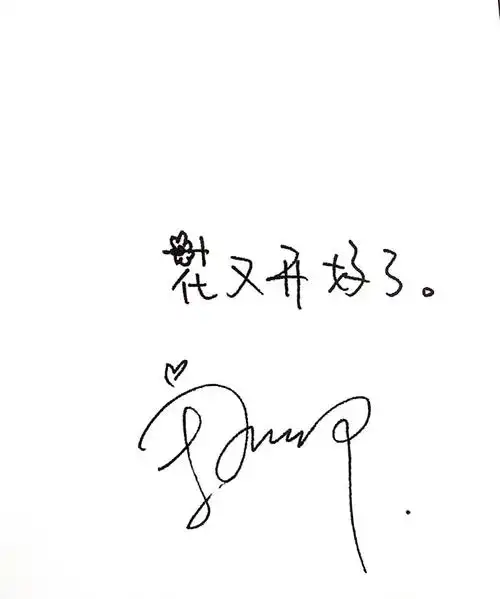 花又开好了。